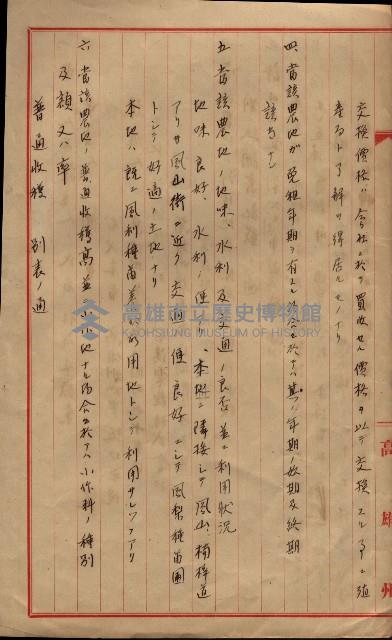 交換價格ハ會社ニ於テ買收セシ價格ヲ以テ交換スル事ニ殖
產局ト了解ヲ得居ルモノナリ
四、當該農地ガ免租年期ヲ有スル場合ニ於テハ其ノ年期ノ始期及終期
該當ナシ
五、當該農地ノ地味、水利及交通ノ良否並ニ利用狀況
地味良好、水利ノ便アリ、本地ニ隣接シテ鳳山楠梓道
アリ且鳳山街ニ近ク交通ノ便良好ニシテ鳳梨種苗圃
トシテ好適ノ土地ナリ
本地ハ既ニ鳳梨種苗養成所用地トシテ利用サレツツアリ
六、當該農地ノ普通收穫高並ニ小作地ナル場合ニ於テハ小作料ノ種別
及額又ハ率
普通收穫 別表ノ通
高雄州
高雄市立歷史博物館
KAOHSIUNG MUSEUM OF HISTORY